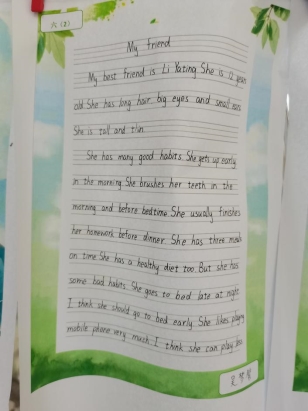 六(2)
My friend
My best friend is Li Yating. She is 12 years
old. She has long hair. big eyes and small ears.
She is tall and thin.
She has many good habits. She gets up early
in the morning. She brushes her teeth in the
morning and before bedtime. She usually finishes
her homework before dinner. She has three meals
on time. She has a healthy diet too. But she has
some bad habits. She goes to bed late at night.
I think she should go to bed early. She likes playing
mobile phone very much. I think she can play less